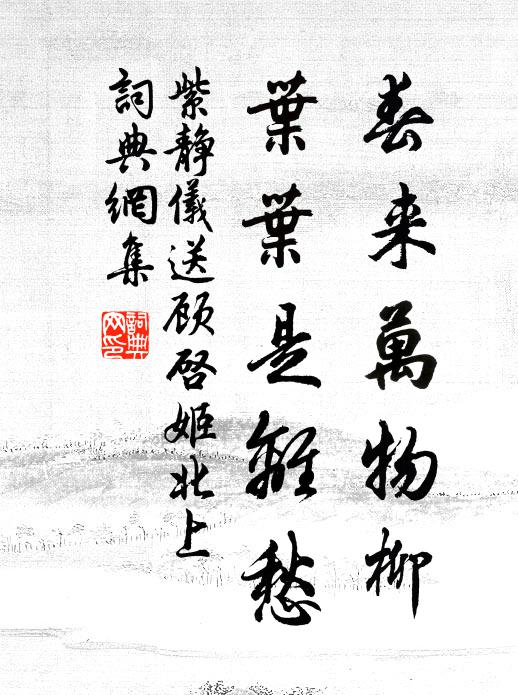 春来萬物柳
葉葉是離愁
紫静儀送顾啓姬北上
詞典網集
詞典
网印